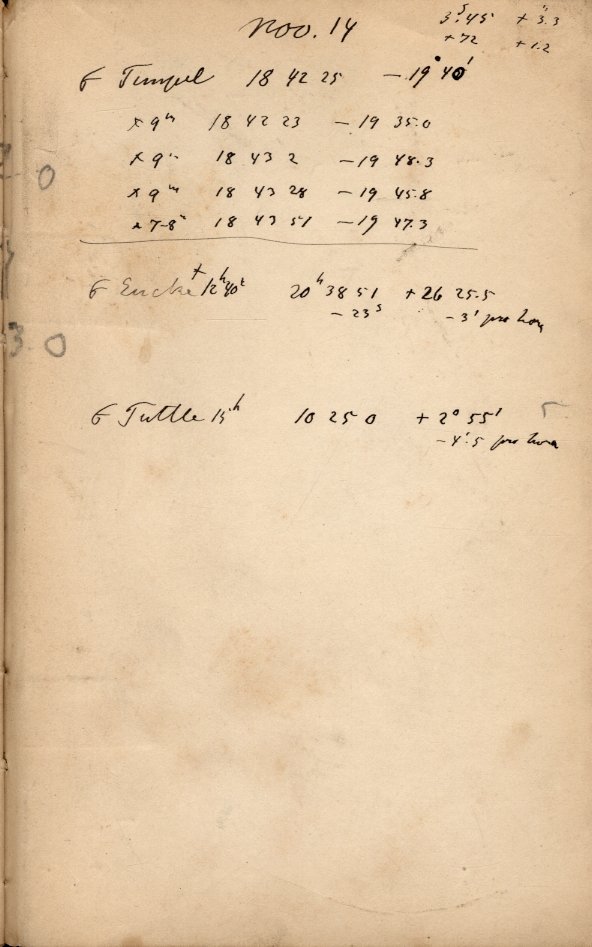 Nov. 14
3ˢ.45 + 3".3
+72 +1.2
☄ Tempel 18 42 25 – 19° 40'
* 9ᵐ 18 42 23 – 19 35.0
* 9ᵐ 18 43 2 – 19 48.3
* 9ᵐ 18 43 28 – 19 45.8
* 7-8ᵐ 18 43 51 – 19 47.3
☄ Encke + 12ʰ40ᵗ 20ʰ 38 51 +26 25.5
– 23ˢ – 3' pro hora
☄ Tuttle 15ʰ 10 25 0 + 2° 55'
– 4'.5 pro hora
0
3 0